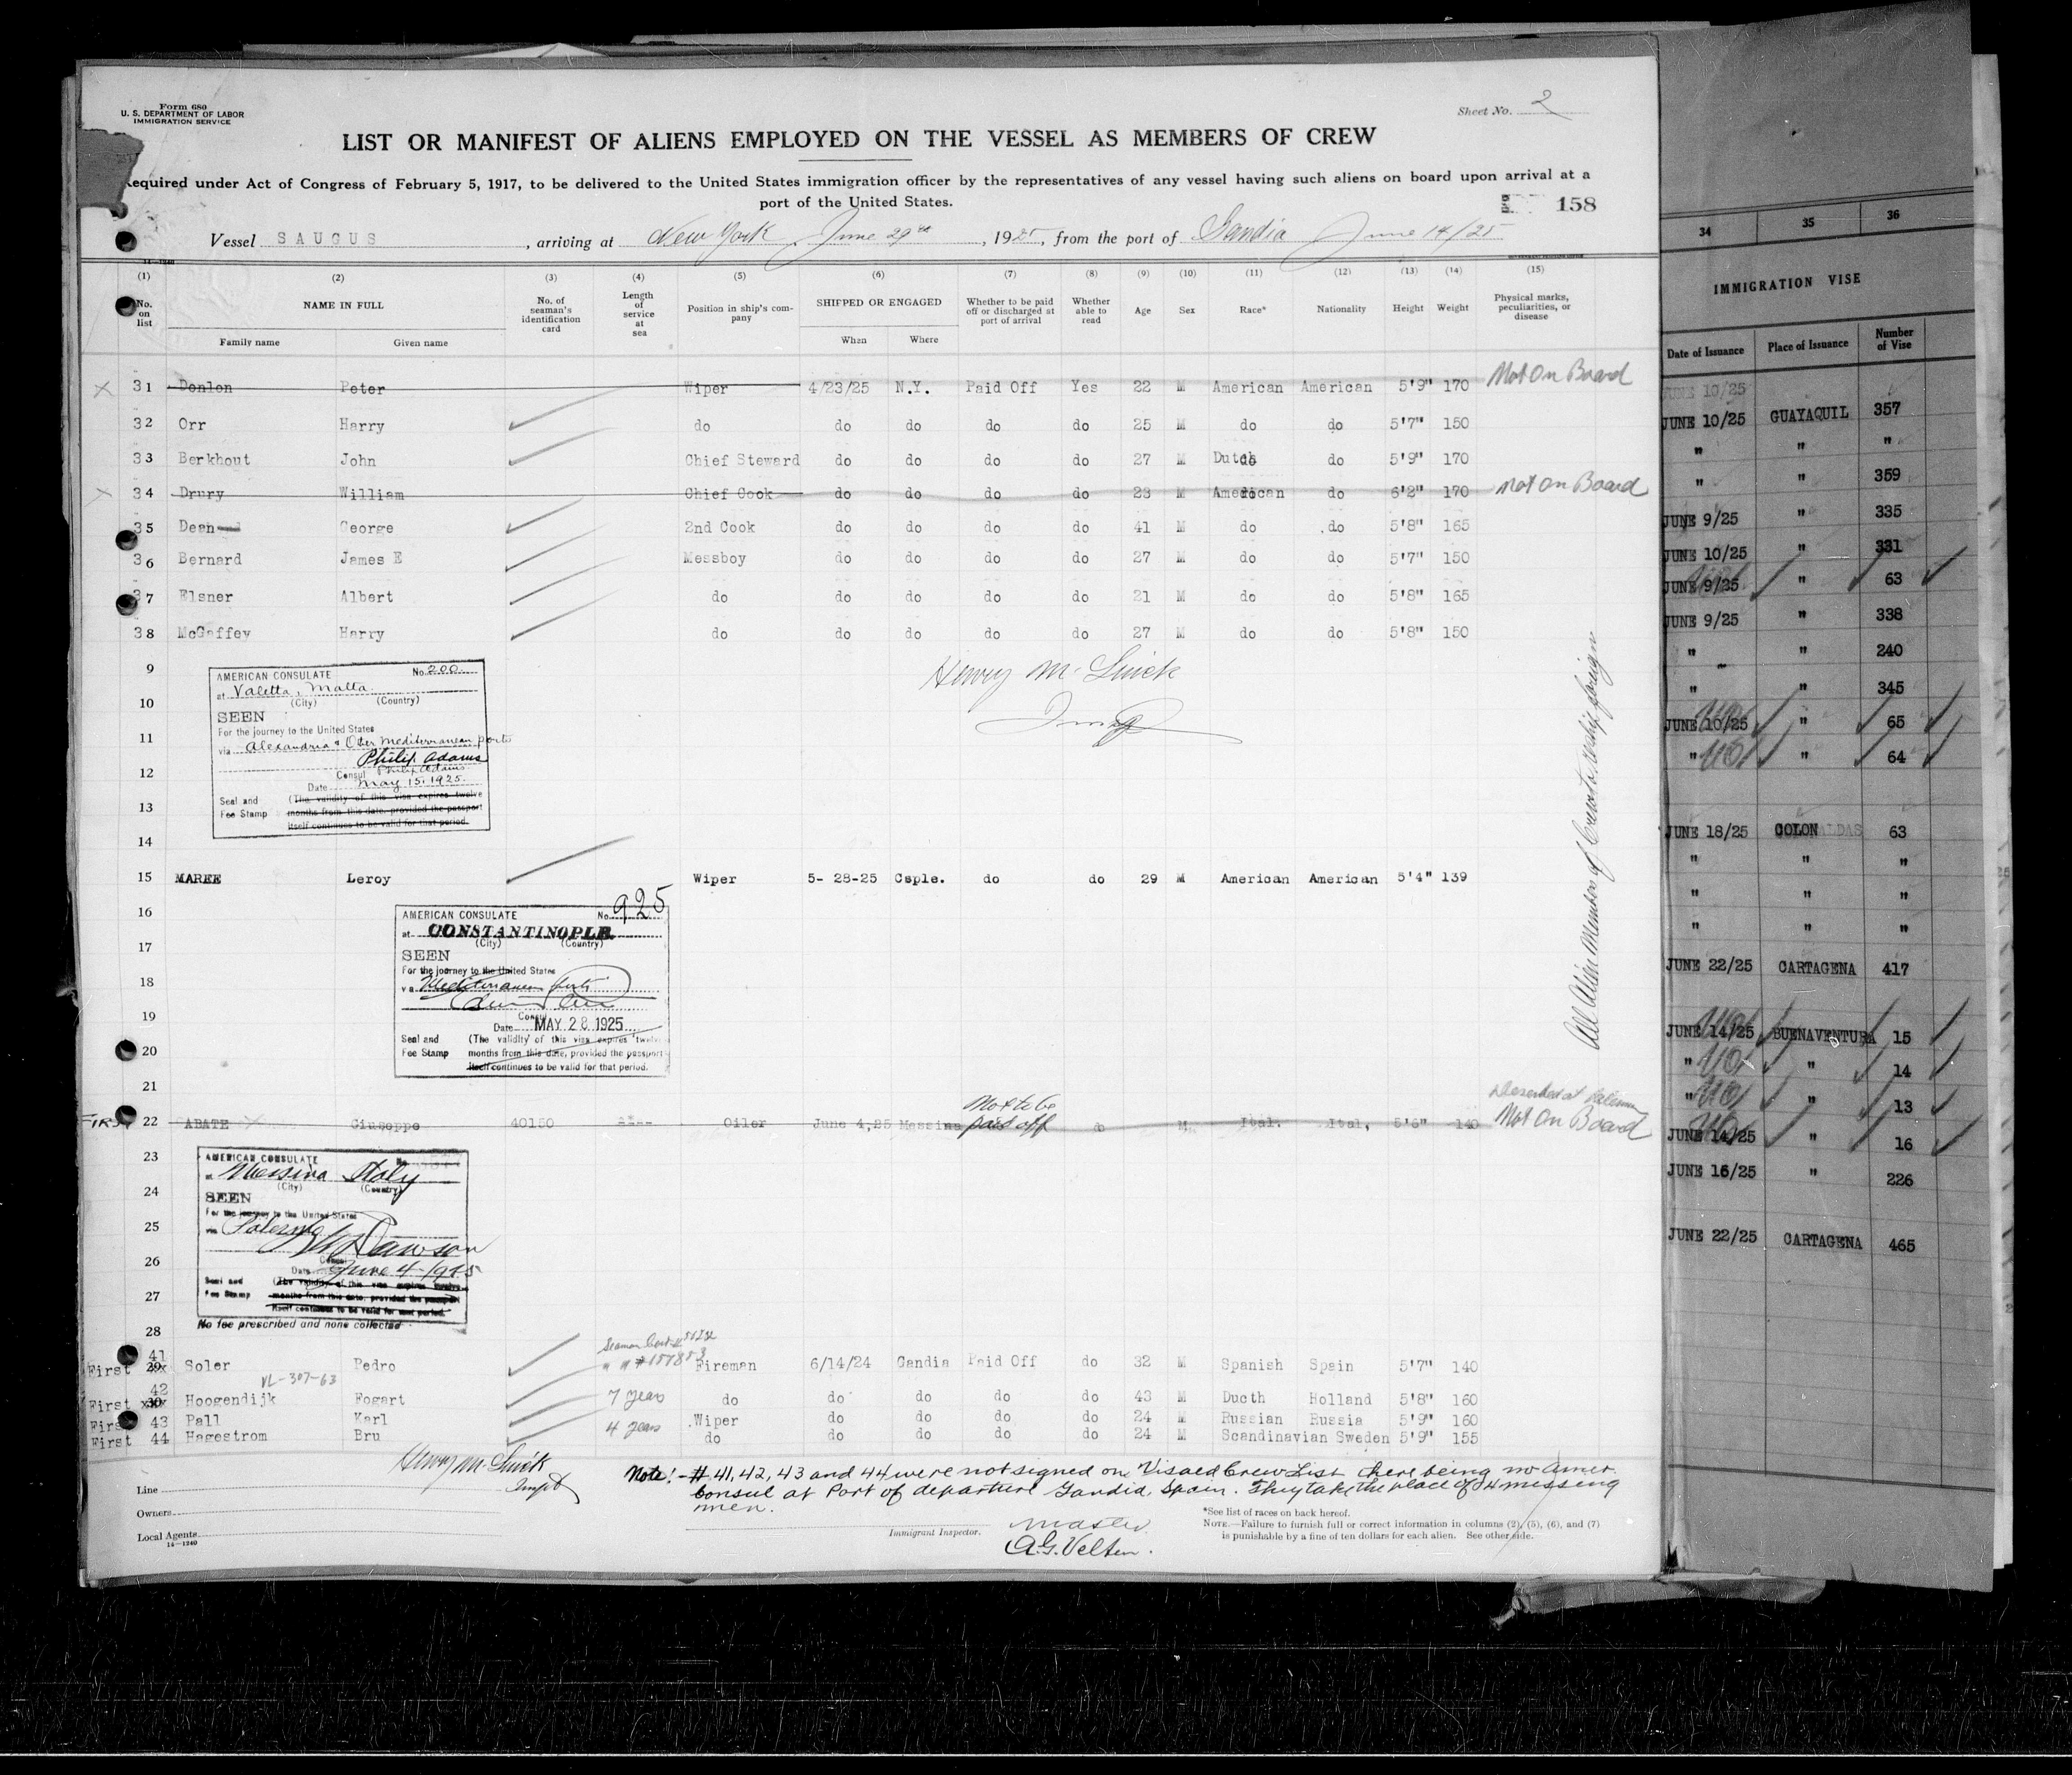 Form 680
U. S. DEPARTMENT OF LABOR
IMMIGRATION SERVICE
Sheet No. 2
LIST OR MANIFEST OF ALIENS EMPLOYED ON THE VESSEL AS MEMBERS OF CREW
Required under Act of Congress of February 5, 1917, to be delivered to the United States immigration officer by the representatives of any vessel having such aliens on board upon arrival at a
port of the United States.
158
Vessel SAUGUS, arriving at New York, June 29th, 1925, from the port of Gandia June 14/25
(1) (2) (3) (4) (5) (6) (7) (8) (9) (10) (11) (12) (13) (14) (15)
No. on list NAME IN FULL Family name Given name No. of seaman's identification card Length of service at sea Position in ship's company SHIPPED OR ENGAGED When Where Whether to be paid off or discharged at port of arrival Whether able to read Age Sex Race* Nationality Height Weight Physical marks, peculiarities, or disease
31 Donlon Peter Wiper 4/23/25 N.Y. Paid Off Yes 22 M American American 5'9" 170 Not On Board
32 Orr Harry do do do do do 25 M do do 5'7" 150
33 Berkhout John Chief Steward do do do do 27 M Dutch do 5'9" 170
34 Drury William Chief Cook do do do do 23 M American do 6'2" 170 Not On Board
35 Dean George 2nd Cook do do do do 41 M do do 5'8" 165
36 Bernard James E Messboy do do do do 27 M do do 5'7" 150
37 Elsner Albert do do do do do 21 M do do 5'8" 165
38 McGaffey Harry do do do do do 27 M do do 5'8" 150
9
Henry M. Quick
AMERICAN CONSULATE No. 200.
at Valetta, Malta.
(City) (Country)
SEEN
For the journey to the United States
via Alexandria & Other Mediterranean ports
Philip Adams
Consul Philip Adams
Date May 15, 1925.
Seal and Fee Stamp (The validity of this visa expires twelve
months from this date, provided the passport
itself continues to be valid for that period.
10
11
12
13
14
15 MAREE Leroy Wiper 5- 28-25 Csple. do do 29 M American American 5'4" 139
16
AMERICAN CONSULATE No. 925
at CONSTANTINOPLE.
(City) (Country)
SEEN
For the journey to the United States
via Mediterranean ports
Consul
Date MAY 28 1925
Seal and Fee Stamp (The validity of this visa expires twelve
months from this date, provided the passport
itself continues to be valid for that period.
17
18
19
20
21
All Alien Members of Crew to reship foreign
Deserted at Palermo
First 22 ABATE Giuseppe 40150 Oiler June 4,25 Messina Not to be paid off do M Ital. Ital, 5'6" 140 Not On Board
23
AMERICAN CONSULATE No.
at Messina Italy
(City) (Country)
SEEN
For the journey to the United States
via Palermo
Dawson
Consul
Date June 4-1925
Seal and Fee Stamp (The validity of this visa expires twelve
months from this date, provided the passport
itself continues to be valid for that period.
No fee prescribed and none collected
24
25
26
27
28
First 41 29 Soler Pedro Fireman 6/14/24 Gandia Paid Off do 32 M Spanish Spain 5'7" 140
VL-307-63
First 42 30 Hoogendijk Fogart 7 years do do do do do 43 M Ducth Holland 5'8" 160
First 43 Pall Karl 4 years Wiper do do do do 24 M Russian Russia 5'9" 160
First 44 Hagestrom Bru do do do do do 24 M Scandinavian Sweden 5'9" 155
Henry M. Quick
Inspt
Note! - # 41, 42, 43 and 44 were not signed on Visaed Crew List there being no Amer.
Consul at Port of departure Gandia, Spain. They take the place of 4 missing
men.
Line
Owners
Local Agents
14—1240
Immigrant Inspector.
Master.
A.G. Velten.
*See list of races on back hereof.
NOTE.—Failure to furnish full or correct information in columns (2), (5), (6), and (7)
is punishable by a fine of ten dollars for each alien. See other side.
34 35 36
IMMIGRATION VISE
Date of Issuance Place of Issuance Number of Vise
JUNE 10/25
JUNE 10/25 GUAYAQUIL 357
" " "
" " 359
JUNE 9/25 " 335
JUNE 10/25 " 331
JUNE 9/25 " 63
JUNE 9/25 " 338
" " 240
" " 345
JUNE 10/25 " 65
" " 64
JUNE 18/25 COLON 63
" " "
" " "
" " "
JUNE 22/25 CARTAGENA 417
JUNE 14/25 BUENAVENTURA 15
" " 14
" " 13
JUNE 14/25 " 16
JUNE 16/25 " 226
JUNE 22/25 CARTAGENA 465